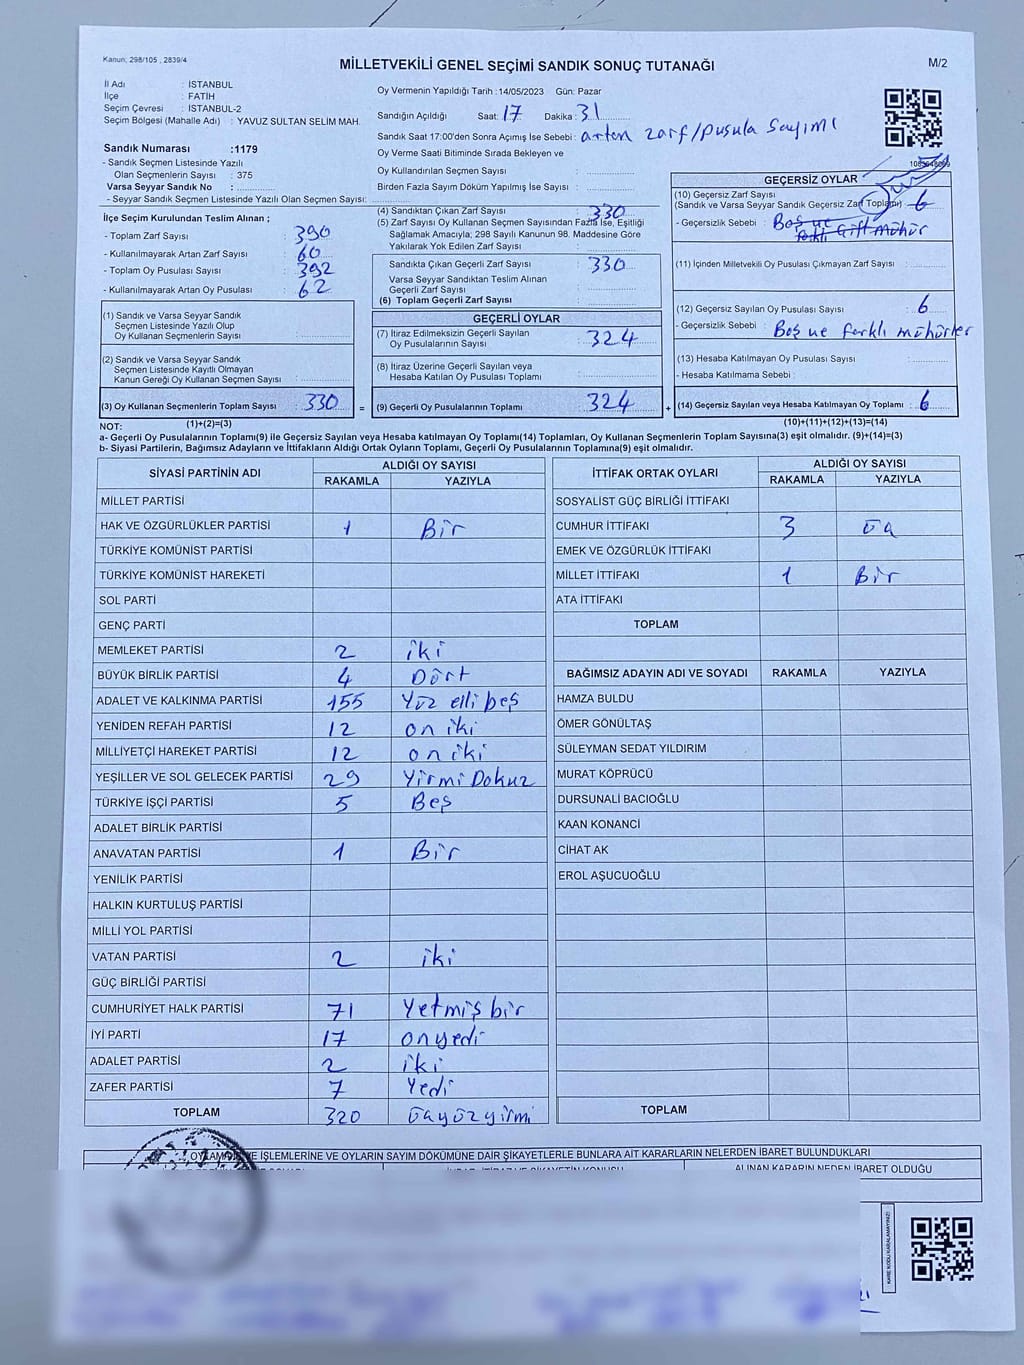 Kanun: 298/105 , 2839/4
MİLLETVEKİLİ GENEL SEÇİMİ SANDIK SONUÇ TUTANAĞI
M/2
İl Adı : İSTANBUL
İlçe : FATİH
Seçim Çevresi : İSTANBUL-2
Seçim Bölgesi (Mahalle Adı) : YAVUZ SULTAN SELİM MAH.
Sandık Numarası :1179
- Sandık Seçmen Listesinde Yazılı
Olan Seçmenlerin Sayısı : 375
Varsa Seyyar Sandık No :
- Seyyar Sandık Seçmen Listesinde Yazılı Olan Seçmen Sayısı:
Oy Vermenin Yapıldığı Tarih :14/05/2023 Gün: Pazar
Sandığın Açıldığı Saat: 17 Dakika : 31
Sandık Saat 17:00'den Sonra Açımış İse Sebebi : artan zarf/pusula sayımı
Oy Verme Saati Bitiminde Sırada Bekleyen ve
Oy Kullandırılan Seçmen Sayısı :
Birden Fazla Sayım Döküm Yapılmış İse Sayısı :
İlçe Seçim Kurulundan Teslim Alınan ;
- Toplam Zarf Sayısı : 390
- Kullanılmayarak Artan Zarf Sayısı : 60
- Toplam Oy Pusulası Sayısı : 392
- Kullanılmayarak Artan Oy Pusulası : 62
(1) Sandık ve Varsa Seyyar Sandık
Seçmen Listesinde Yazılı Olup
Oy Kullanan Seçmenlerin Sayısı :
(2) Sandık ve Varsa Seyyar Sandık
Seçmen Listesinde Kayıtlı Olmayan
Kanun Gereği Oy Kullanan Seçmen Sayısı :
(3) Oy Kullanan Seçmenlerin Toplam Sayısı : 330
(1)+(2)=(3)
(4) Sandıktan Çıkan Zarf Sayısı : 330
(5) Zarf Sayısı Oy Kullanan Seçmen Sayısından Fazla İse, Eşitliği
Sağlamak Amacıyla; 298 Sayılı Kanunun 98. Maddesine Göre
Yakılarak Yok Edilen Zarf Sayısı :
Sandıkta Çıkan Geçerli Zarf Sayısı : 330
Varsa Seyyar Sandıktan Teslim Alınan
Geçerli Zarf Sayısı :
(6) Toplam Geçerli Zarf Sayısı :
GEÇERLİ OYLAR
(7) İtiraz Edilmeksizin Geçerli Sayılan
Oy Pusulalarının Sayısı : 324
(8) İtiraz Üzerine Geçerli Sayılan veya
Hesaba Katılan Oy Pusulası Toplamı :
= (9) Geçerli Oy Pusulalarının Toplamı : 324
GEÇERSİZ OYLAR
(10) Geçersiz Zarf Sayısı
(Sandık ve Varsa Seyyar Sandık Geçersiz Zarf Toplamı) : 6
- Geçersizlik Sebebi : Boş ve
farklı Çift mühür
(11) İçinden Milletvekili Oy Pusulası Çıkmayan Zarf Sayısı :
(12) Geçersiz Sayılan Oy Pusulası Sayısı : 6
- Geçersizlik Sebebi : Boş ve farklı mühürler
(13) Hesaba Katılmayan Oy Pusulası Sayısı :
- Hesaba Katılmama Sebebi :
+ (14) Geçersiz Sayılan veya Hesaba Katılmayan Oy Toplamı : 6
(10)+(11)+(12)+(13)=(14)
NOT:
a- Geçerli Oy Pusulalarının Toplamı(9) ile Geçersiz Sayılan veya Hesaba katılmayan Oy Toplamı(14) Toplamları, Oy Kullanan Seçmenlerin Toplam Sayısına(3) eşit olmalıdır. (9)+(14)=(3)
b- Siyasi Partilerin, Bağımsız Adayların ve İttifakların Aldığı Ortak Oyların Toplamı, Geçerli Oy Pusulalarının Toplamına(9) eşit olmalıdır.
SİYASİ PARTİNİN ADI
ALDIĞI OY SAYISI
RAKAMLA YAZIYLA
MİLLET PARTİSİ
HAK VE ÖZGÜRLÜKLER PARTİSİ 1 Bir
TÜRKİYE KOMÜNİST PARTİSİ
TÜRKİYE KOMÜNİST HAREKETİ
SOL PARTİ
GENÇ PARTİ
MEMLEKET PARTİSİ 2 iki
BÜYÜK BİRLİK PARTİSİ 4 Dört
ADALET VE KALKINMA PARTİSİ 155 Yüz elli beş
YENİDEN REFAH PARTİSİ 12 on iki
MİLLİYETÇİ HAREKET PARTİSİ 12 on iki
YEŞİLLER VE SOL GELECEK PARTİSİ 29 Yirmi Dokuz
TÜRKİYE İŞÇİ PARTİSİ 5 Beş
ADALET BİRLİK PARTİSİ
ANAVATAN PARTİSİ 1 Bir
YENİLİK PARTİSİ
HALKIN KURTULUŞ PARTİSİ
MİLLİ YOL PARTİSİ
VATAN PARTİSİ 2 iki
GÜÇ BİRLİĞİ PARTİSİ
CUMHURİYET HALK PARTİSİ 71 Yetmiş bir
İYİ PARTİ 17 onyedi
ADALET PARTİSİ 2 iki
ZAFER PARTİSİ 7 Yedi
TOPLAM 320 üçyüzyirmi
İTTİFAK ORTAK OYLARI
ALDIĞI OY SAYISI
RAKAMLA YAZIYLA
SOSYALİST GÜÇ BİRLİĞİ İTTİFAKI
CUMHUR İTTİFAKI 3 üç
EMEK VE ÖZGÜRLÜK İTTİFAKI
MİLLET İTTİFAKI 1 Bir
ATA İTTİFAKI
TOPLAM
BAĞIMSIZ ADAYIN ADI VE SOYADI RAKAMLA YAZIYLA
HAMZA BULDU
ÖMER GÖNÜLTAŞ
SÜLEYMAN SEDAT YILDIRIM
MURAT KÖPRÜCÜ
DURSUNALİ BACIOĞLU
KAAN KONANCİ
CİHAT AK
EROL AŞUCUOĞLU
TOPLAM
İŞLEMLERİNE VE OYLARIN SAYIM DÖKÜMÜNE DAİR ŞİKAYETLERLE BUNLARA AİT KARARLARIN NELERDEN İBARET BULUNDUKLARI
ALINAN KARARIN NEDEN İBARET OLDUĞU
KARE KODU KARALAMAYINIZ!